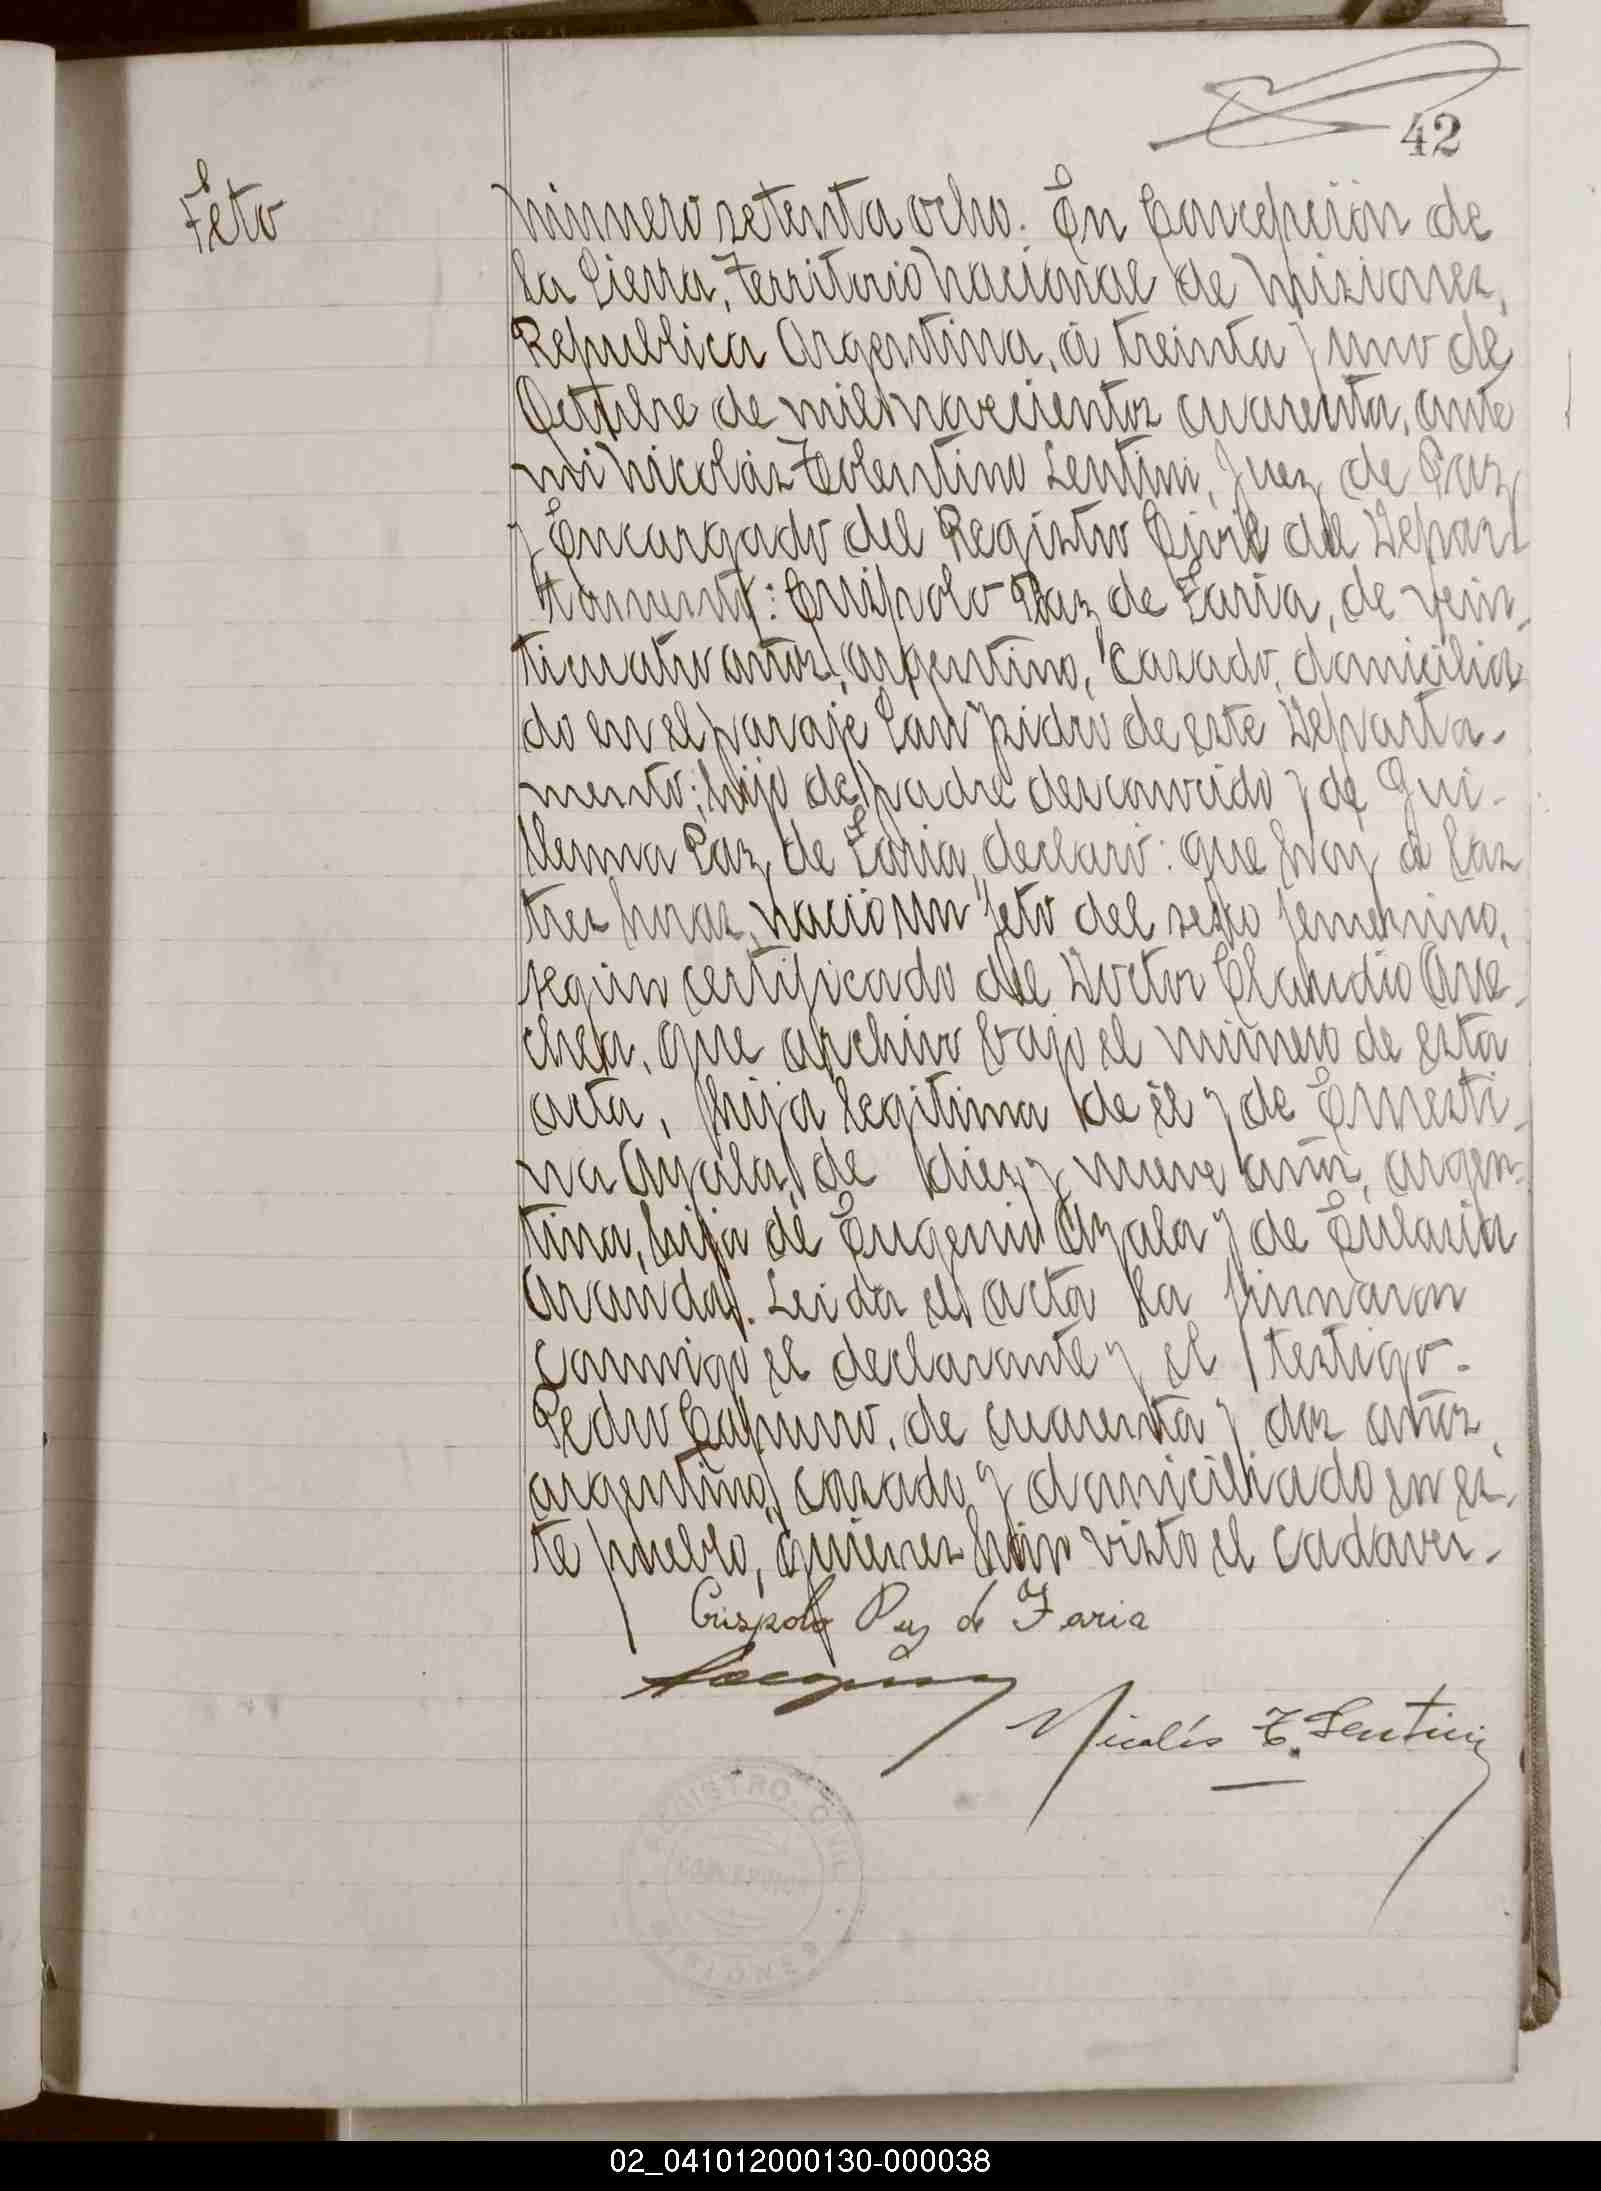 42
Feto
Número setenta ocho. En Concepción de
la Sierra, Territorio Nacional de Misiones,
Republica Argentina, á treinta y uno de
Octubre de mil novecientos cuarenta, ante
mi Nicolás Tolentino Lentini, Juez de Paz
y Encargado del Registro Civil del Depar-
tamento: Crispolo Paz de Faria, de vein-
ticuatro años, argentino, casado, domicilia-
do en el paraje San Ysidro de este Departa-
mento; hijo de padre desconocido y de Gui-
llerma Paz de Faria, declaró: que hoy á las
tres horas, nació un feto del sexo femenino,
según certificado del Doctor Claudio Arre-
chea, que archivo bajo el número de esta
acta, hija legitima de él y de Ernesti-
na Ayala, de diez y nueve años, argen-
tina, hija de Eugenio Ayala y de Eulasia
Aranda. Leida el acta la firmaron
conmigo el declarante y el testigo-
Pedro Capurro, de cuarenta y dos años,
argentino, casado y domiciliado en es-
te pueblo, quienes hán visto el cadaver.-
Crispolo Paz de Faria
Nicolás T. Lentini
REGISTRO CIVIL
CONCEPCION
MISIONES
02_041012000130-000038